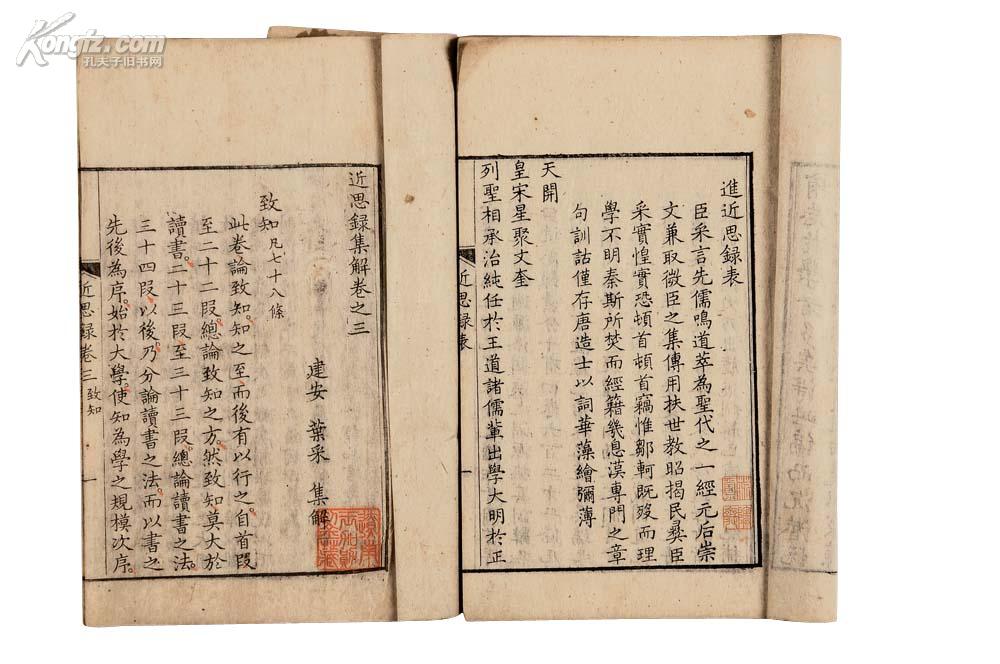 進近思録表
臣采言先儒鳴道萃為聖代之一經元后崇
文兼取微臣之集傳用扶世教昭揭民彝臣
采實惶實恐頓首頓首竊惟鄒軻既歿而理
學不明秦斯所焚而經籍幾息漢專門之章
句訓詁僅存唐造士以詞華藻繪彌薄
天開
皇宋星聚文奎
列聖相承治純任於王道諸儒輩出學大明於正
近思録表
一
近思錄集解卷之三
建安 葉采 集解
致知凡七十八條
此卷論致知知之至而後有以行之自首段
至二十二段總論致知之方然致知莫大於
讀書二十三段至三十三段總論讀書之法
三十四段以後乃分論讀書之法而以書之
先後為序始於大學使知為學之規模次序
近思録卷三 致知
一
Kongfz.com
孔夫子旧书网